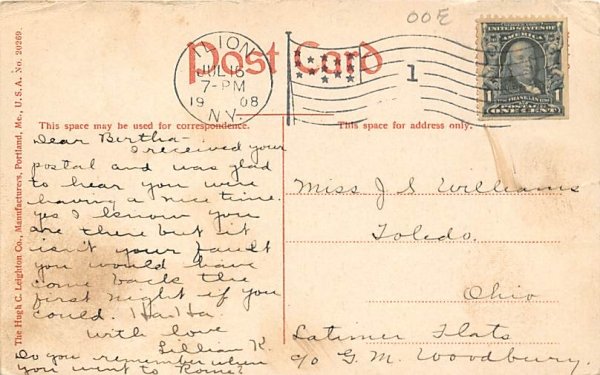 00E
Post Card
ILION
JUL 16
7-PM
1908
N.Y.
1
UNITED STATES OF
AMERICA
FRANKLIN
POSTAGE
ONE CENT
This space may be used for correspondence.
This space for address only.
The Hugh C. Leighton Co., Manufacturers, Portland, Me., U.S.A. No. 20269.
Dear Birtha-
I received your
postal and was glad
to hear you were
having a nice time.
yes I know you
are there but it
isn't your fault
you would have
come back the
first night if you
could. Ha Ha
with love
Lillian K.
Do you remember when
you went to Rome?
Miss J S Williams
Toledo.
Ohio
Latimer Flats
c/o G. M. Woodbury.